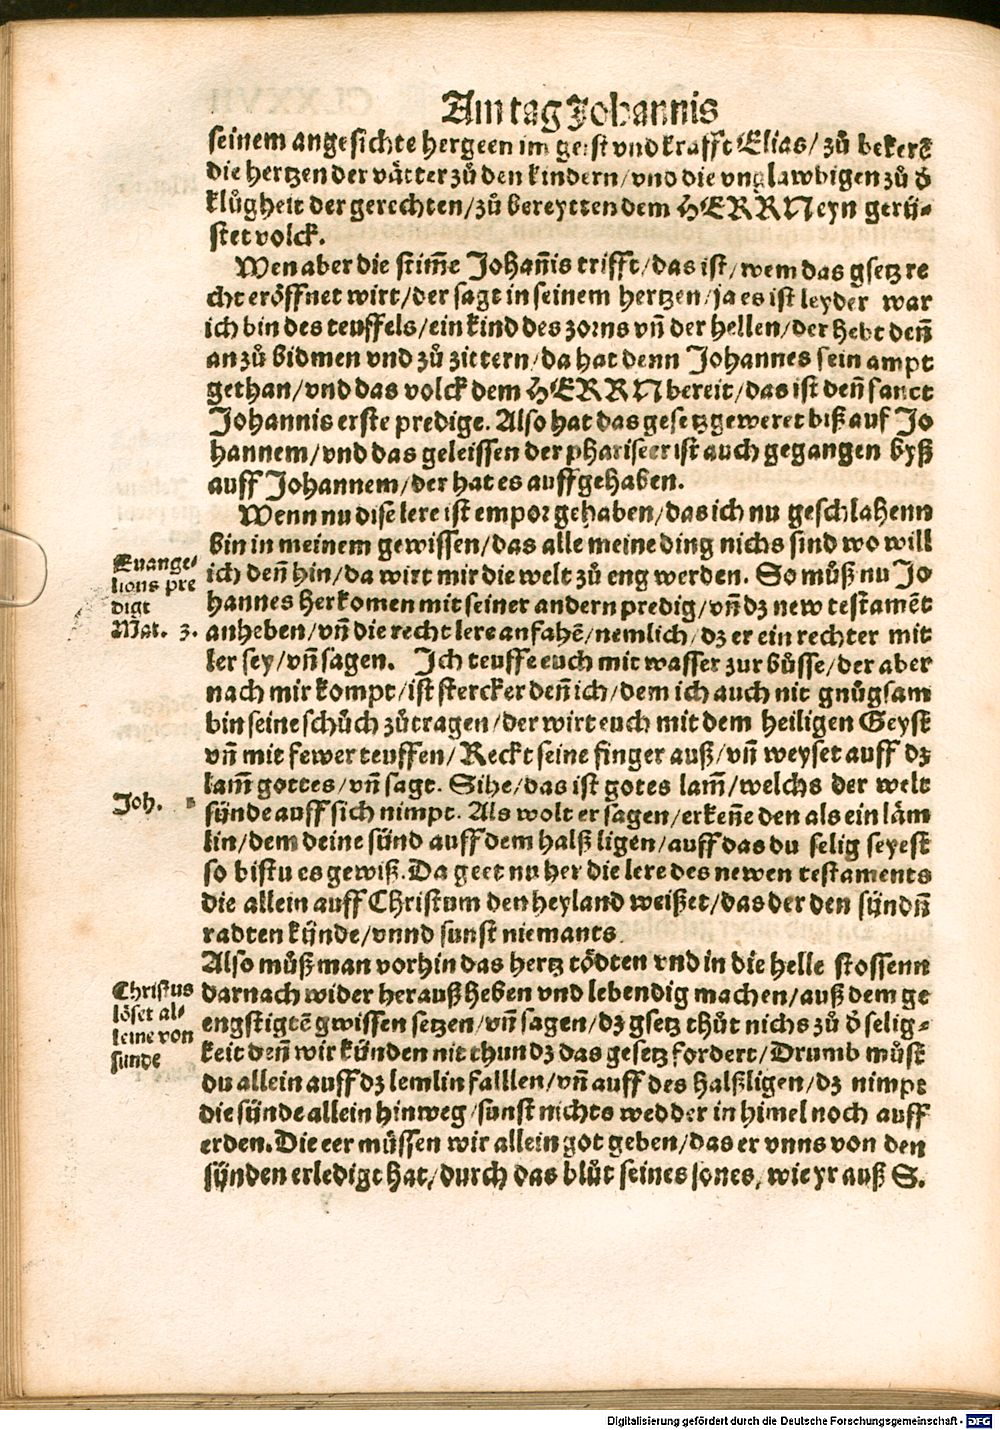 Am tag Johannis
seinem angesichte hergeen im geist vnd krafft Elias/ zů bekerē
die hertzen der vätter zů den kindern/vnd die vnglawbigen zů d̄
klůgheit der gerechten/zů bereytten dem HERRN eyn gerü-
stet volck.
Wen aber die stim̄e Johan̄is trifft/das ist/wem das gsetz re
cht eröffnet wirt/der sagt in seinem hertzen/ja es ist leyder war
ich bin des teuffels/ein kind des zorns vn̄ der hellen/der hebt den̄
an zů bidmen vnd zů zittern/da hat denn Johannes sein ampt
gethan/vnd das volck dem HERRN bereit/das ist den̄ sanct
Johannis erste predige. Also hat das gesetz geweret biß auf Jo
hannem/vnd das geleissen der phariseer ist auch gegangen byß
auff Johannem/der hat es auffgehaben.
Wenn nu dise lere ist empor gehaben/das ich nu geschlahenn
bin in meinem gewissen/das alle meine ding nichs sind wo will
ich den̄ hin/da wirt mir die welt zů eng werden. So můß nu Jo
hannes herkomen mit seiner andern predig/vn̄ dz new testamēt
anheben/vn̄ die recht lere anfahē/nemlich/dz er ein rechter mit
ler sey/vn̄ sagen. Ich teuffe euch mit wasser zur bůsse/der aber
nach mir kompt/ist stercker den̄ ich/dem ich auch nit gnůgsam
bin seine schůch zůtragen/der wirt euch mit dem heiligen Geyst
vn̄ mit fewer teuffen/Reckt seine finger auß/vn̄ weyset auff dz
lam̄ gottes/vn̄ sagt. Sihe/das ist gotes lam̄/welchs der welt
sünde auff sich nimpt. Als wolt er sagen/erken̄e den als ein läm
lin/dem deine sünd auff dem halß ligen/auff das du selig seyest
so bistu es gewiß. Da geet nu her die lere des newen testaments
die allein auff Christum den heyland weißet/das der den sündn̄
radten künde/vnnd sunst niemants.
Also můß man vorhin das hertz tödten vnd in die helle stossenn
darnach wider herauß heben vnd lebendig machen/auß dem ge
engstigtē gwissen setzen/vn̄ sagen/dz gsetz thůt nichs zů d̄ selig-
keit den̄ wir künden nit thun dz das gesetz fordert/Drumb můst
du allein auff dz lemlin falllen/vn̄ auff des halßligen/dz nimpt
die sünde allein hinweg/sunst nichts wedder in himel noch auff
erden. Die eer müssen wir allein got geben/das er vnns von den
sünden erledigt hat/durch das blůt seines sones, wie yr auß S.
Euange-
lions pre
digt
Mat. 3.
Joh.
Christus
löset al-
leine von
sünde
Digitalisierung gefördert durch die Deutsche Forschungsgemeinschaft - DFG